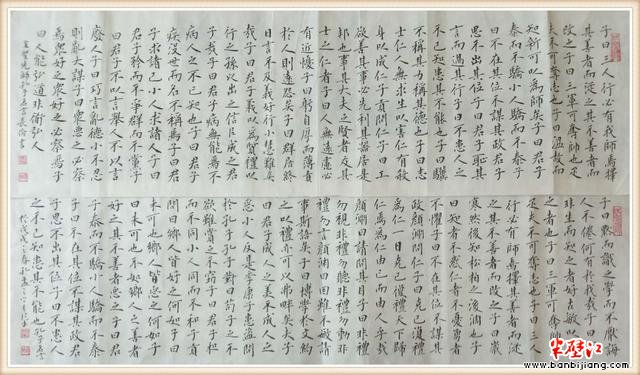 子曰三人行必有我師焉擇
其善者而從之其不善者而
改之子曰三軍可奪帥也匹
夫不可奪志也子曰溫故而
知新可以為師矣子曰君子
泰而不驕小人驕而不泰子
曰不在其位不謀其政君子
思不出其位子曰君子恥其
言而過其行子曰不患人之
不己知患其不能也子曰驥
不稱其力稱其德也子曰志
士仁人無求生以害仁有殺
身以成仁子貢問仁子曰工
欲善其事必先利其器居是
邦也事其大夫之賢者友其
士之仁者子曰人無遠慮必
有近憂子曰躬自厚而薄責
於人則遠怨矣子曰群居終
日言不及義好行小慧難矣
哉子曰君子義以為質禮以
行之孫以出之信以成之君
子哉子曰君子病無能焉不
病人之不己知也子曰君子
疾沒世而名不稱焉子曰君
子求諸己小人求諸人子曰
君子矜而不爭群而不黨子
曰君子不以言舉人不以言
廢人子曰巧言亂德小不忍
則亂大謀子曰眾惡之必察焉
為眾好之眾好之必察焉子
曰人能弘道非道弘人
至聖先師孔子名言
子曰默而識之學而不厭誨
人不倦何有於我哉子曰我
非生而知之者好古敏以求
之者也子曰三軍可奪帥也
匹夫不可奪志也子曰三人
行必有師焉擇其善者而從
之其不善者而改之子曰歲
寒然後知松柏之後凋也子
曰知者不惑仁者不憂勇者
不懼子曰不在其位不謀其
政顏淵問仁子曰克己復禮
為仁一日克己復禮天下歸
仁焉為仁由己而由人乎哉
顏淵曰請問其目子曰非禮
勿視非禮勿聽非禮勿動非
禮勿言顏淵曰回雖不敏請
事斯語矣子曰博學於文約
之以禮亦可以弗畔矣夫子
曰君子成人之美不成人之
惡小人反是季康子患盜問
於孔子孔子對曰苟子之不
欲雖賞之不竊子曰君子和
而不同小人同而不和子貢
問曰鄉人皆好之何如子曰
未可也鄉人皆惡之何如子
曰未可也不如鄉人之善者
好之其不善者惡之子曰君
子泰而不驕小人驕而不泰
子曰不在其位不謀其政君
子思不出其位子曰不患人
之不己知患其不能也孔子名言
於戊戌之春
半壁江
www.banbijiang.com